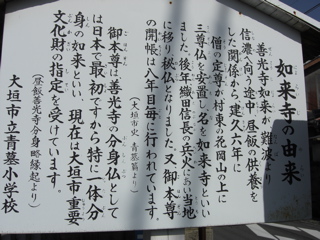 如来寺の由来
善光寺如来が難波より
信濃へ向う途中、昼飯の供養を
した関係から、建久六年に
僧の定尊が村東の花岡山の上に
三尊仏を安置し、名を如来寺といい
ました。後年織田信長の兵火にあい当地
に移り秘仏となりました。又御本尊
の開帳は八年目毎に行われています。
(大垣市史 青墓篇より)
御本尊は善光寺の分身仏として
は日本で最初ですから特に一体分
身の如来といい、現在は大垣市重要
文化財の指定を受けています。
(昼飯善光寺分身略縁起より)
大垣市立青墓小学校